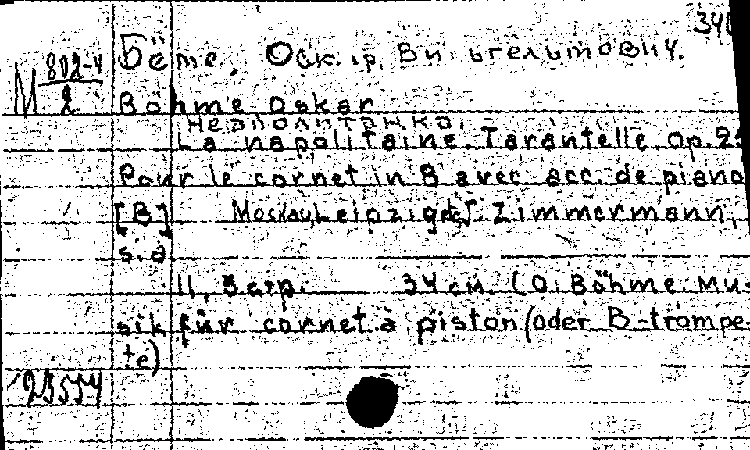 М 802-4/2
Бёме, Оскар Вильгельмович.
Böhme Oskar
Неаполитанка.
La napolitaine. Tarantelle. op. 25
Pour le cornet in B avec acc. de piano
[B] Moskau, Leipzig etc. J. Zimmermann,
s.a
11, 3 стр. 34 см. (O. Böhme. Mu-
sik für cornet à piston (oder B-trompe-
te)
29554